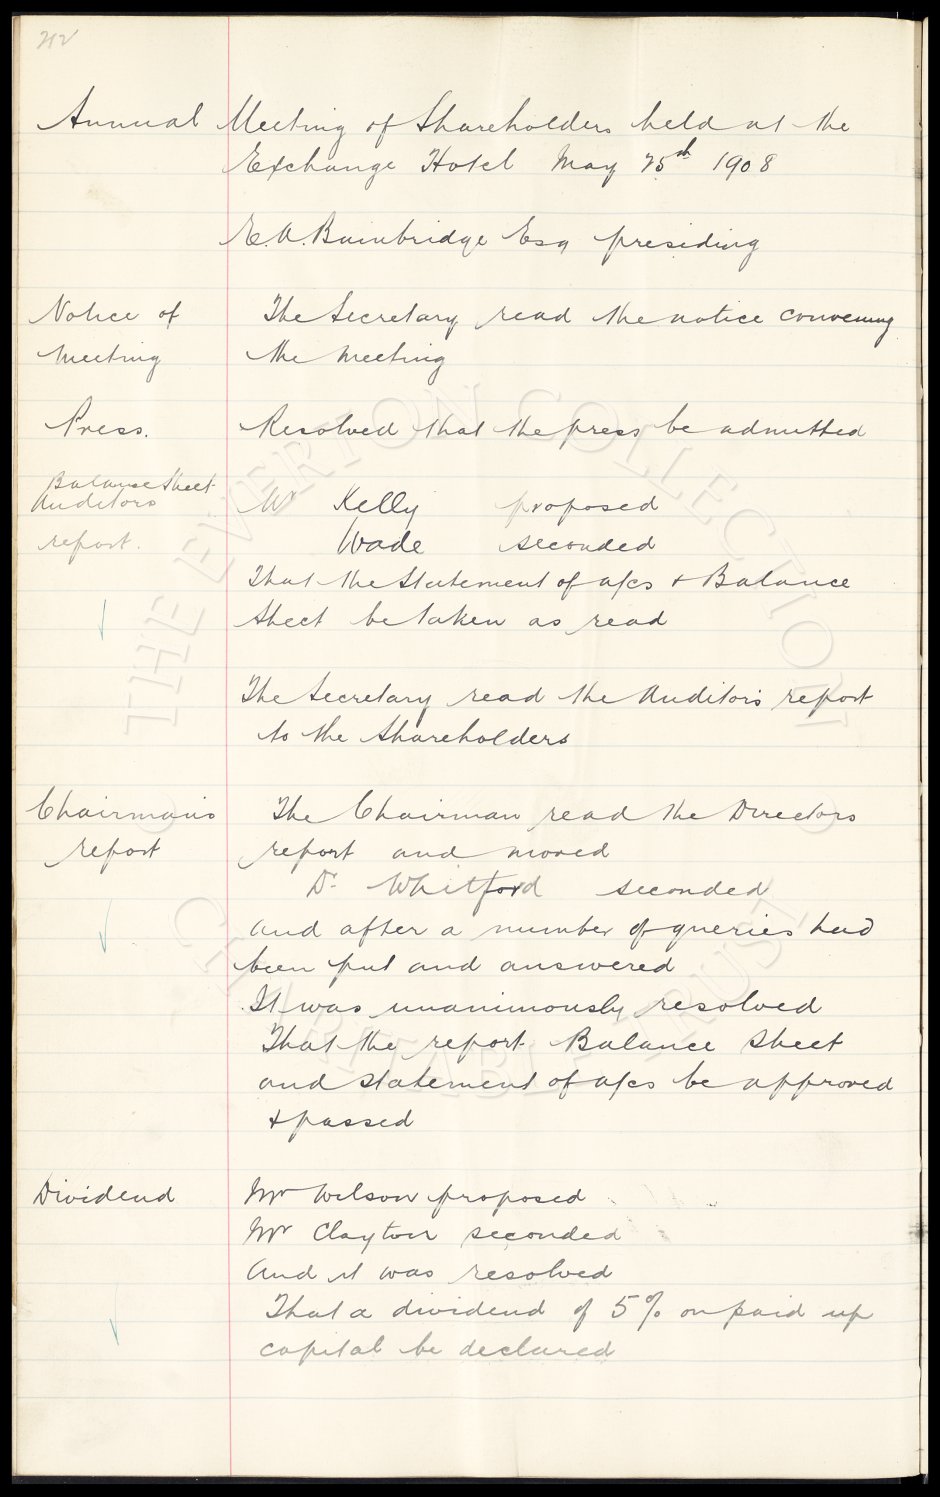 212
Annual Meeting of Shareholders held at the
Exchange Hotel May 25th 1908
E.A. Bainbridge Esq presiding
Notice of The Secretary read the notice convening
Meeting the Meeting
Press. Resolved that the press be admitted
Balance Sheet
Auditors Mr Kelly proposed
report. Wade seconded
That the Statement of a/cs & Balance
Sheet be taken as read
The Secretary read the Auditors report
to the Shareholders
Chairman's The Chairman read the Directors
report report and moved
Dr Whitford seconded
and after a number of queries had
been put and answered
It was unanimously resolved
That the report Balance Sheet
and statement of a/cs be approved
& passed
Dividend Mr Wilson proposed
Mr Clayton seconded
And it was resolved
That a dividend of 5% on paid up
capital be declared
THE EVERTON COLLECTION
© CHARITABLE TRUST ©